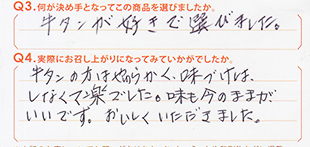 Q3.何が決め手となってこの商品を選びましたか。
牛タンが好きで選びました。
Q4.実際にお召し上がりになってみていかがでしたか。
牛タンの方はやわらかく、味づけは、
しなくて楽でした。味も今のままが
いいです。おいしくいただきました。